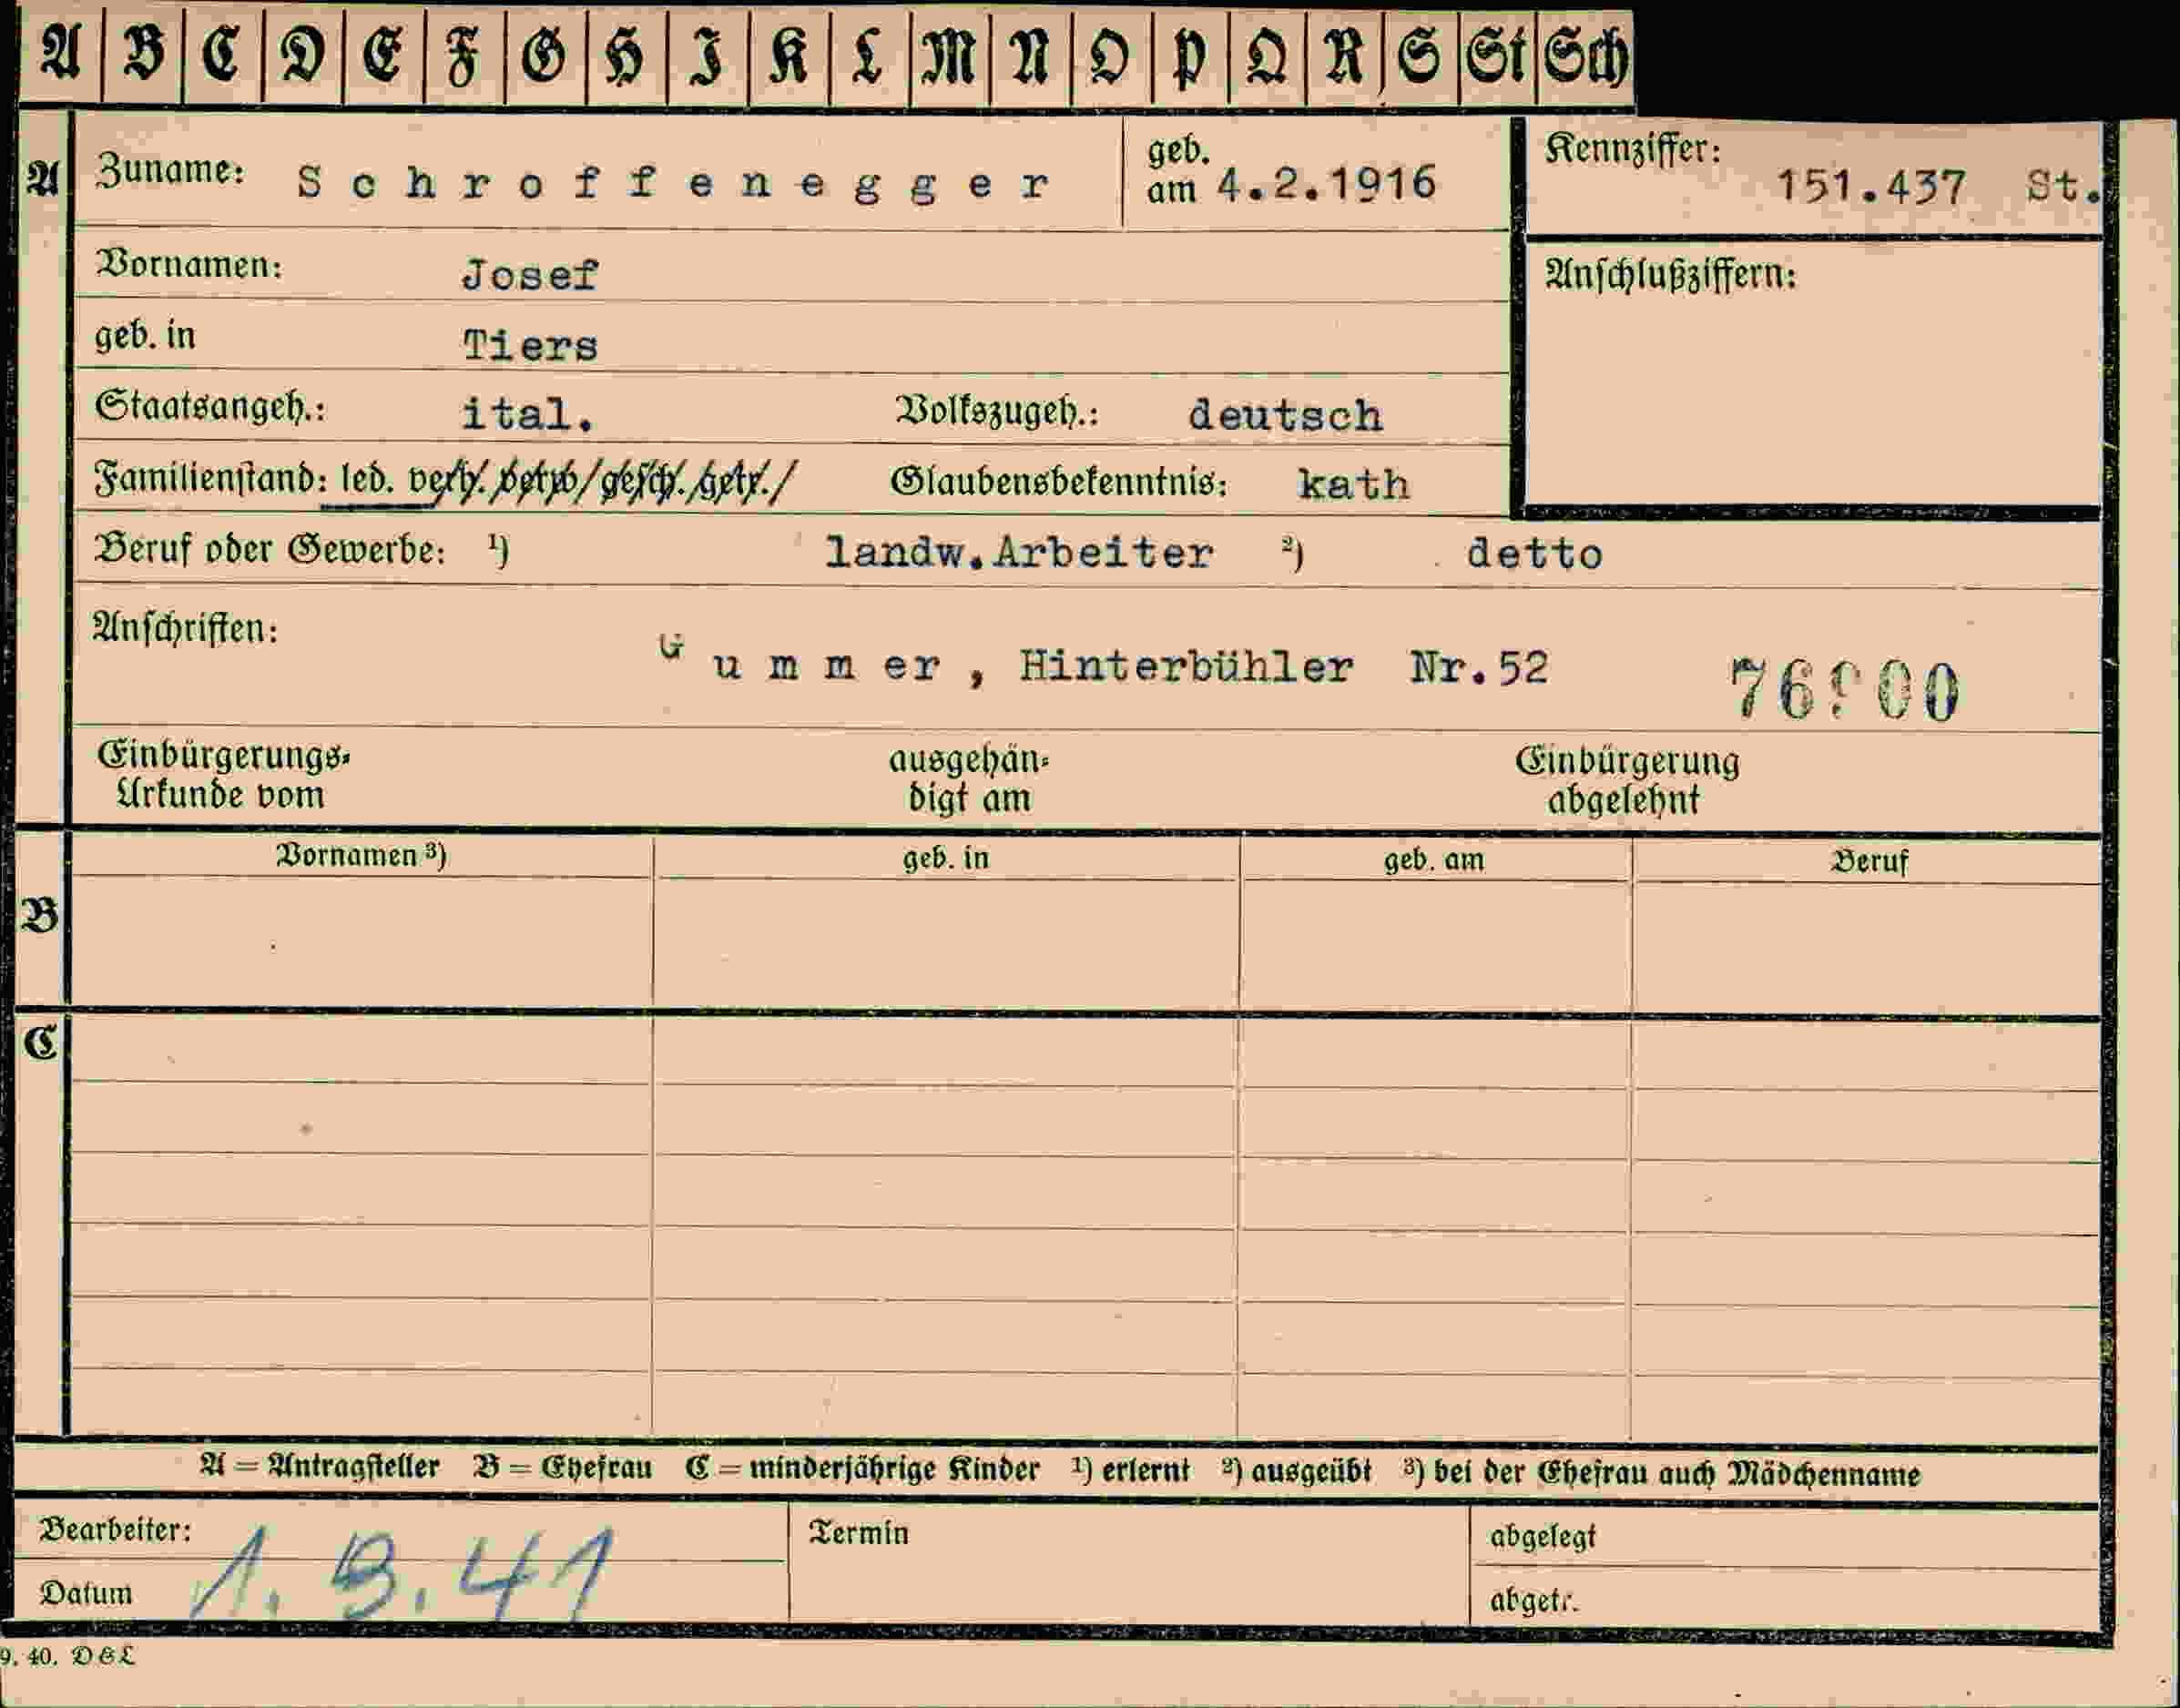 A B C D E F G H I K L M N O P Q R S St Sch
A
Zuname: Schroffenegger geb. am 4.2.1916 Kennziffer: 151.437 St.
Vornamen: Josef Anschlußziffern:
geb. in Tiers
Staatsangeh.: ital. Volkszugeh.: deutsch
Familienstand: led. verh. verw. gesch. getr. Glaubensbekenntnis: kath
Beruf oder Gewerbe: ¹) landw.Arbeiter ²) detto
Anschriften: Gummer, Hinterbühler Nr.52
Einbürgerungs- ausgehän- Einbürgerung
Urkunde vom digt am abgelehnt
Vornamen ³) geb. in geb. am Beruf
B
C
A = Antragsteller B = Ehefrau C = minderjährige Kinder ¹) erlernt ²) ausgeübt ³) bei der Ehefrau auch Mädchenname
Bearbeiter: Termin abgelegt
Datum 1. 9. 41 abgetr.
9. 40. D&L